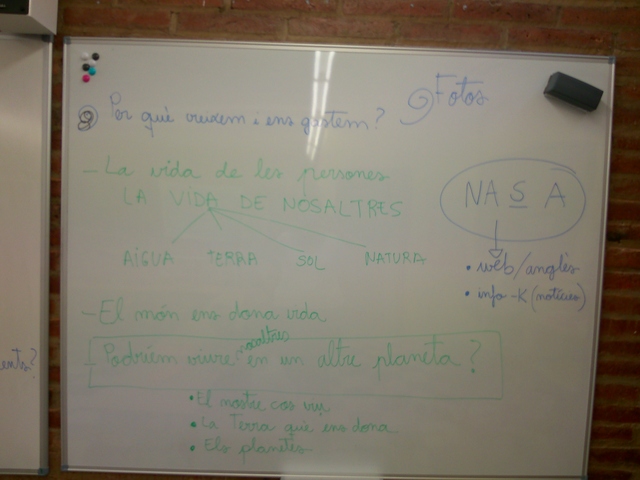 Fotos
9 Per què creixem i ens gastem?
- La vida de les persones
LA VIDA DE NOSALTRES
AIGUA TERRA SOL NATURA
NASA
• web/anglès
• info-K (notícies)
- El món ens dona vida
- Podríem viure nosaltres en un altre planeta?
• El nostre cos viu
• La Terra què ens dona
• Els planetes